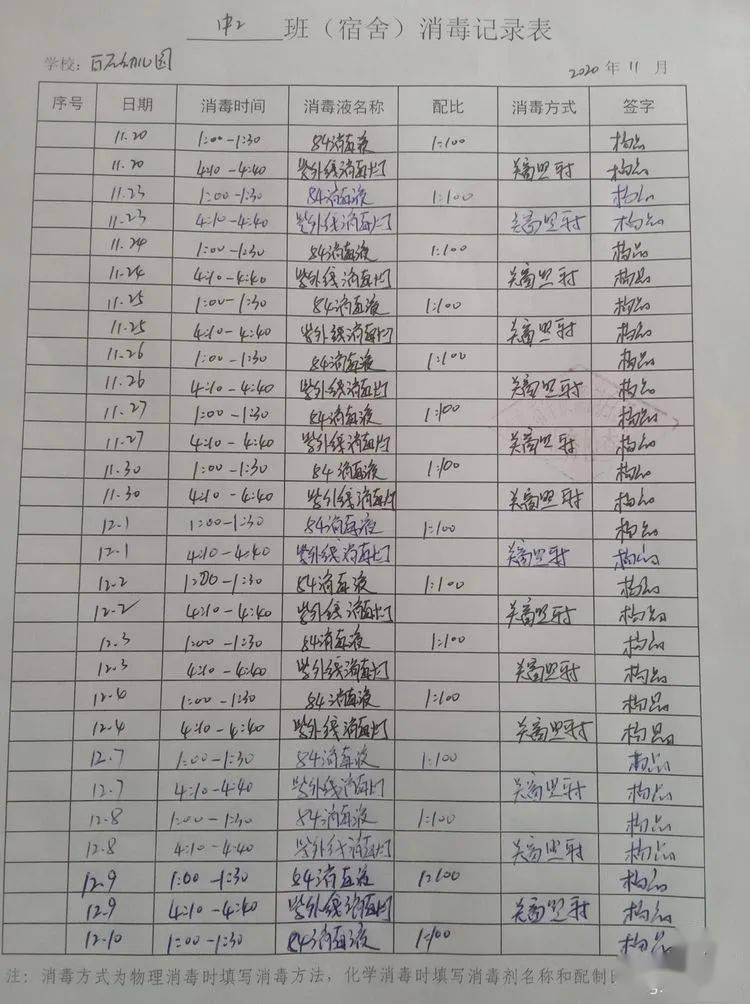 中2 班（宿舍）消毒记录表
学校：百石幼儿园
2020 年 11 月
序号 日期 消毒时间 消毒液名称 配比 消毒方式 签字
11.20 1:00-1:30 84消毒液 1:100
11.20 4:10-4:40 紫外线消毒灯 关窗照射
11.23 1:00-1:30 84消毒液 1:100
11.23 4:10-4:40 紫外线消毒灯 关窗照射
11.24 1:00-1:30 84消毒液 1:100
11.24 4:10-4:40 紫外线消毒灯 关窗照射
11.25 1:00-1:30 84消毒液 1:100
11.25 4:10-4:40 紫外线消毒灯 关窗照射
11.26 1:00-1:30 84消毒液 1:100
11.26 4:10-4:40 紫外线消毒灯 关窗照射
11.27 1:00-1:30 84消毒液 1:100
11.27 4:10-4:40 紫外线消毒灯 关窗照射
11.30 1:00-1:30 84消毒液 1:100
11.30 4:10-4:40 紫外线消毒灯 关窗照射
12.1 1:00-1:30 84消毒液 1:100
12.1 4:10-4:40 紫外线消毒灯 关窗照射
12.2 1:00-1:30 84消毒液 1:100
12.2 4:10-4:40 紫外线消毒灯 关窗照射
12.3 1:00-1:30 84消毒液 1:100
12.3 4:10-4:40 紫外线消毒灯 关窗照射
12.4 1:00-1:30 84消毒液 1:100
12.4 4:10-4:40 紫外线消毒灯 关窗照射
12.7 1:00-1:30 84消毒液 1:100
12.7 4:10-4:40 紫外线消毒灯 关窗照射
12.8 1:00-1:30 84消毒液 1:100
12.8 4:10-4:40 紫外线消毒灯 关窗照射
12.9 1:00-1:30 84消毒液 1:100
12.9 4:10-4:40 紫外线消毒灯 关窗照射
12.10 1:00-1:30 84消毒液 1:100
注：消毒方式为物理消毒时填写消毒方法，化学消毒时填写消毒剂名称和配制